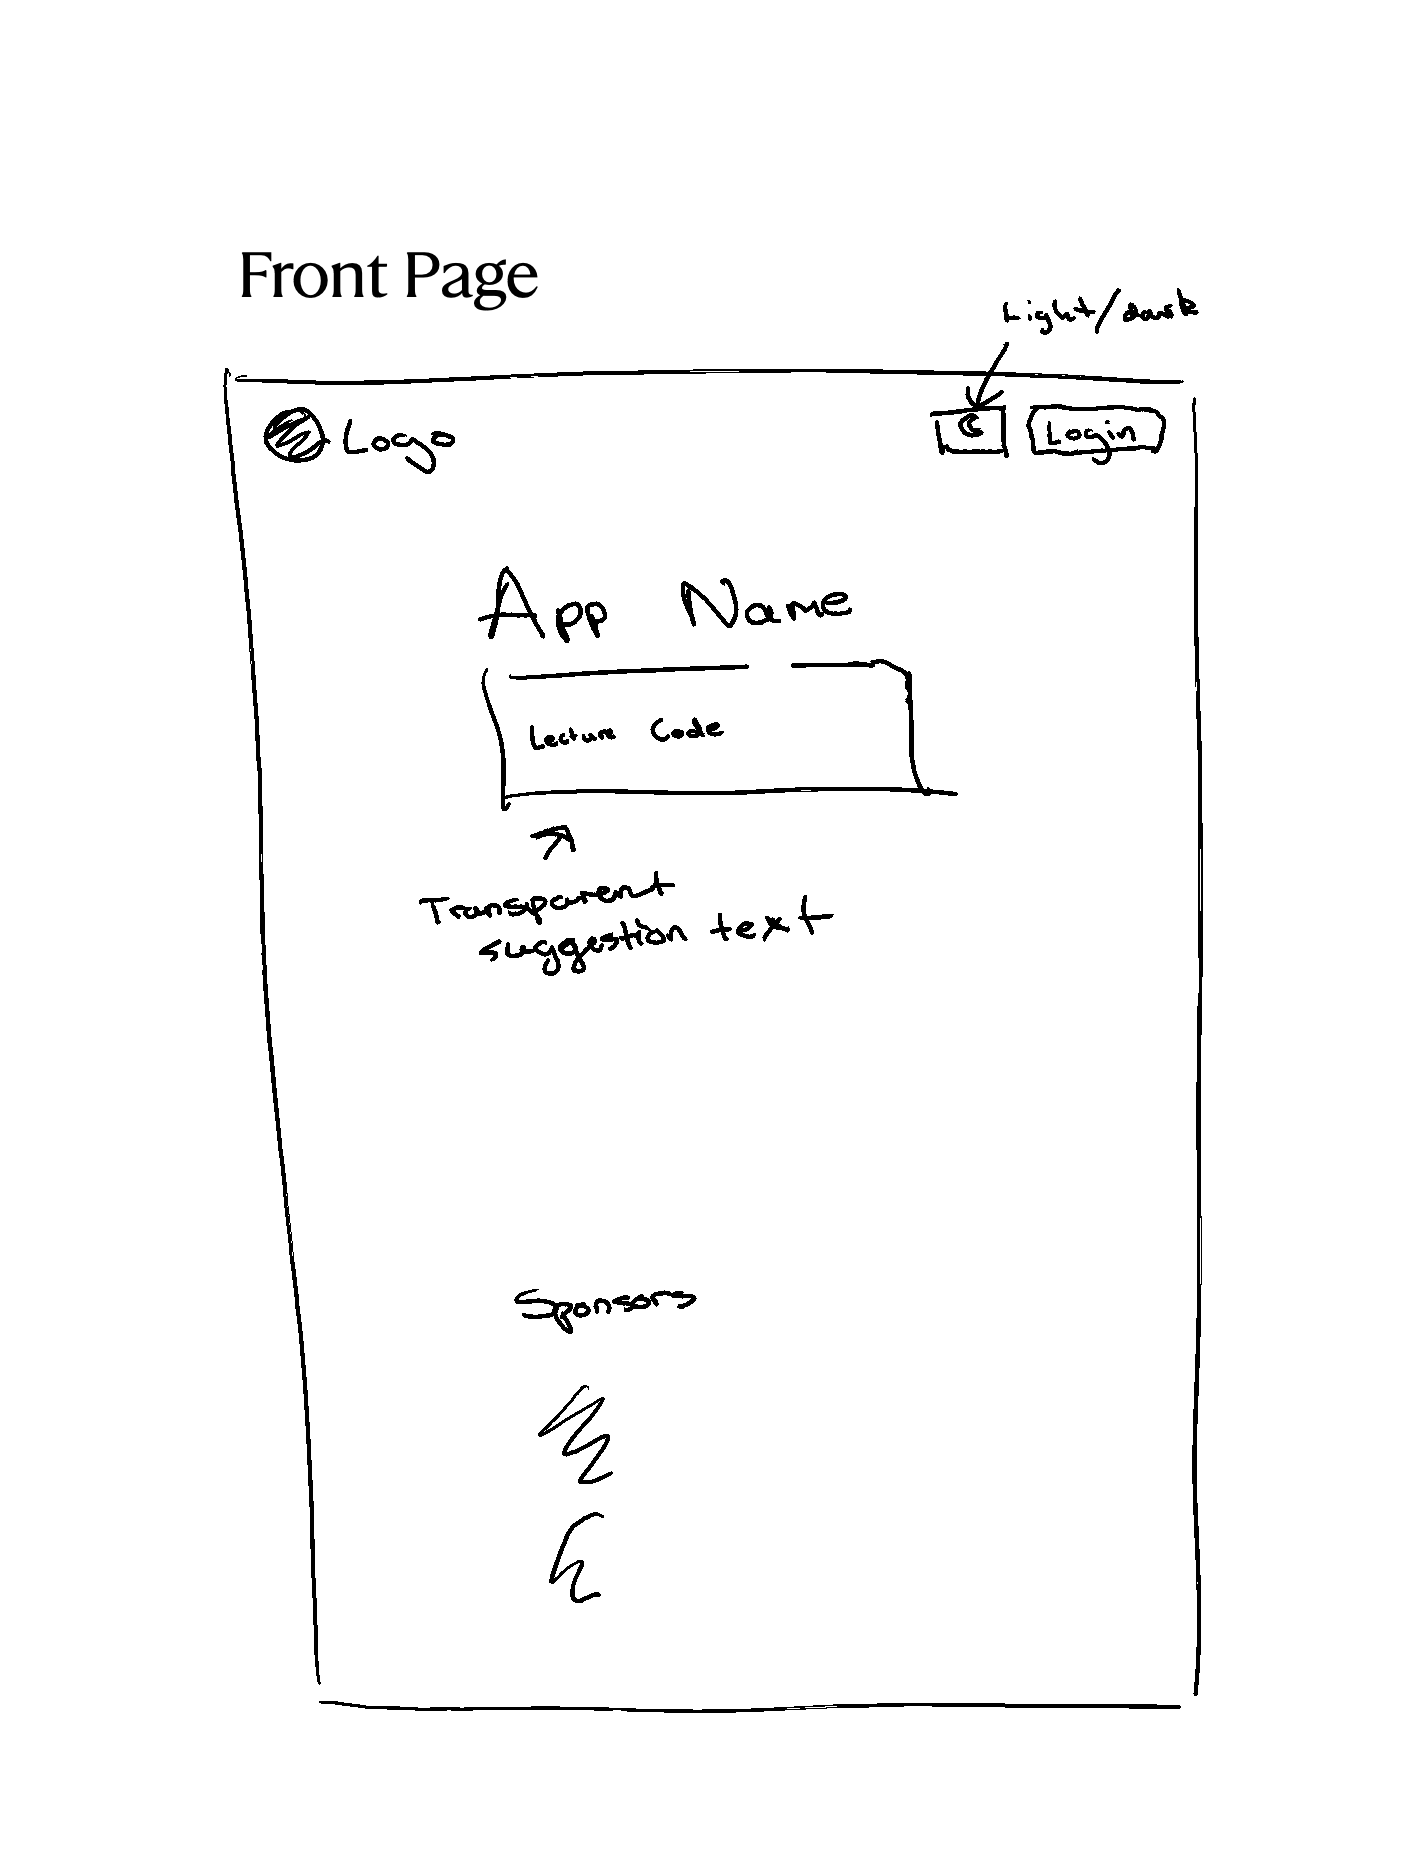 Front Page
Light/dark
Logo
Login
App Name
Lecture Code
Transparent
suggestion text
Sponsors